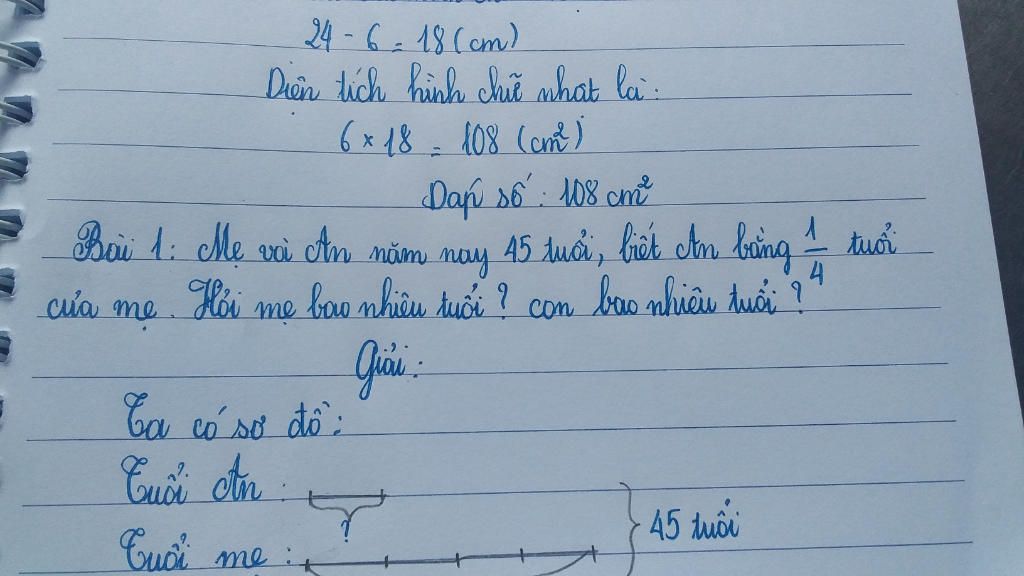 24 - 6 = 18 (cm)
Diện tích hình chữ nhat là:
6 × 18 = 108 (cm²)
Đáp số: 108 cm²
Bài 1: Mẹ và An năm nay 45 tuổi, biết An bằng 1/4 tuổi
của mẹ. Hỏi mẹ bao nhiêu tuổi? con bao nhiêu tuổi?
Giải:
Ta có sơ đồ:
Tuổi An:
?
45 tuổi
Tuổi mẹ: